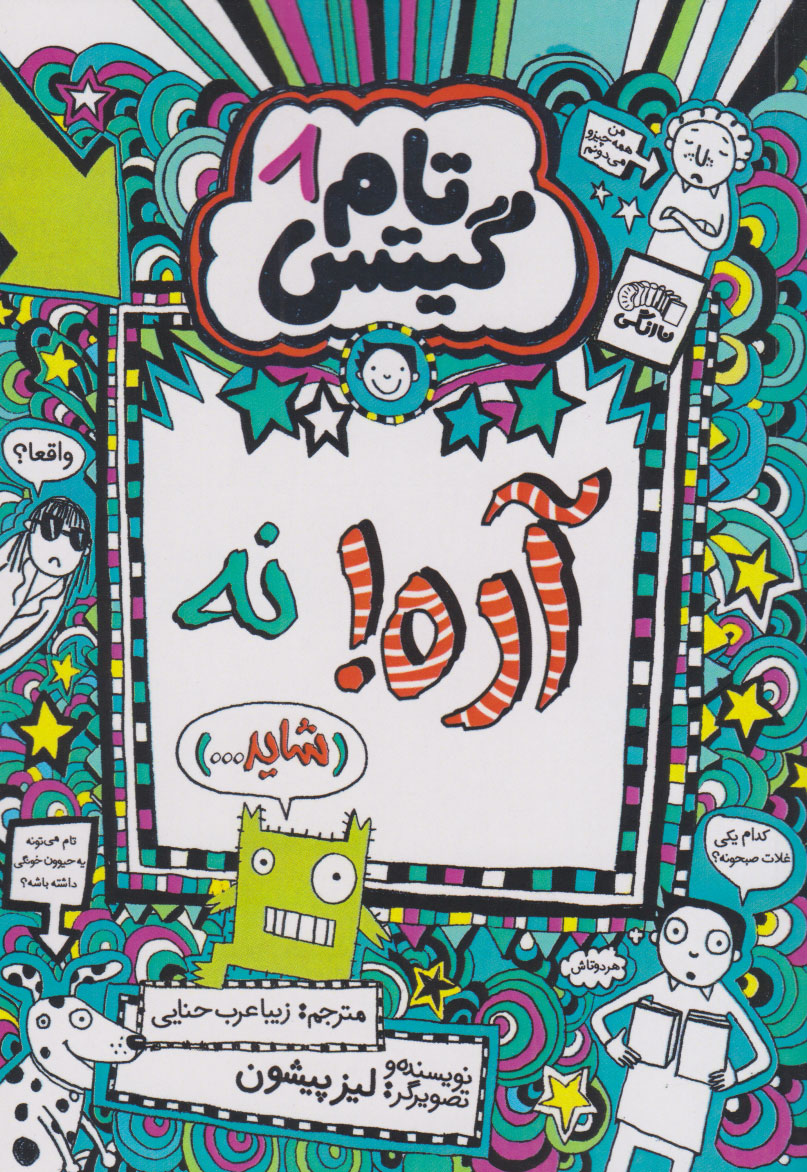 تام ۸
گیتس
من
همه چیزو
می‌دونم
نارنگی
واقعا؟
آره! نه
(شاید...)
تام می‌تونه
یه حیوون خونگی
داشته باشه؟
کدام یکی
غلات صبحونه؟
هر دوتاش
مترجم: زیبا عرب حنایی
نویسنده و
تصویرگر: لیز پیشون